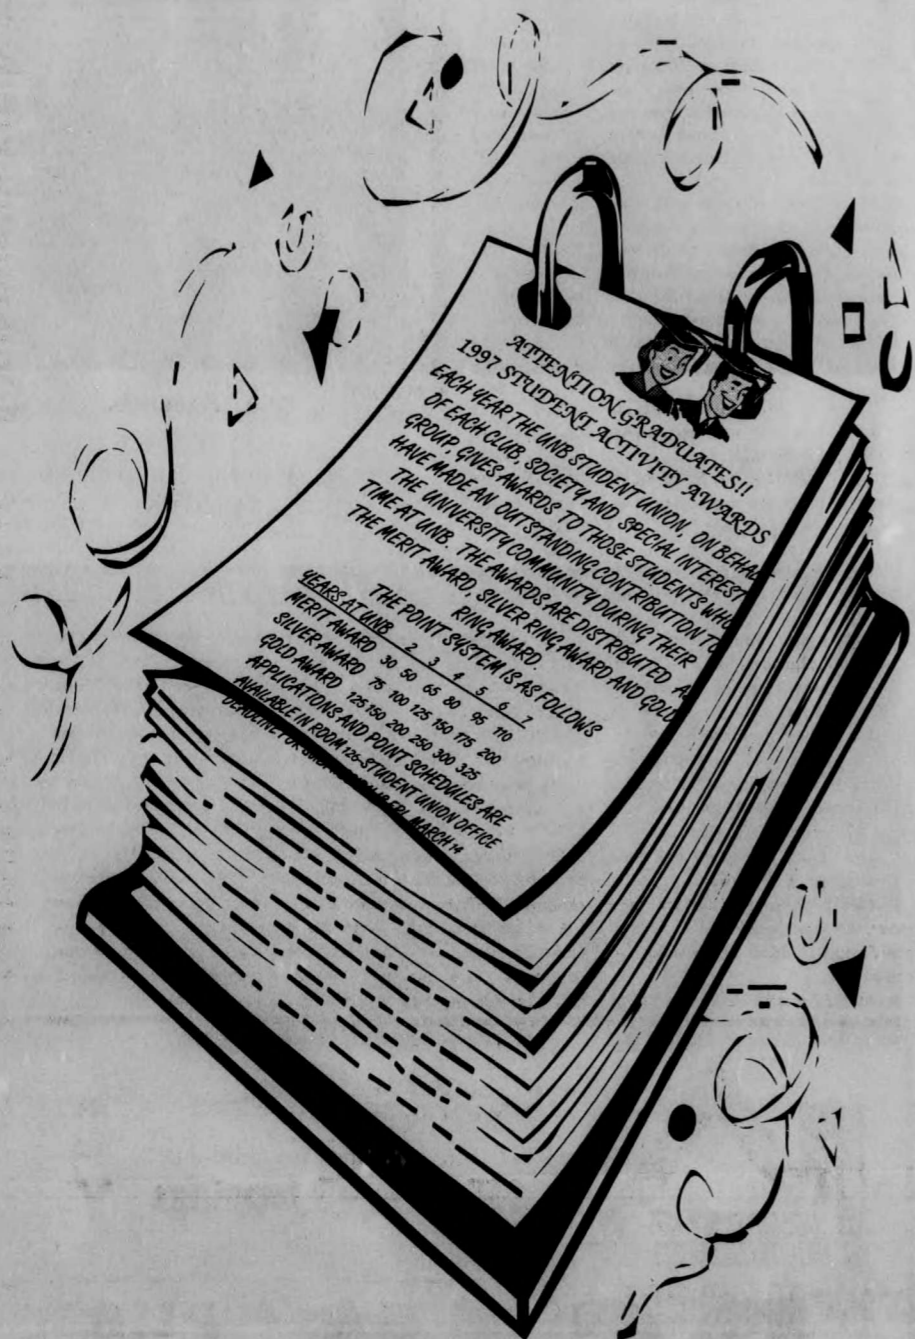 ATTENTION GRADUATES!!
1997 STUDENT ACTIVITY AWARDS
EACH YEAR THE UNB STUDENT UNION, ON BEHALF
OF EACH CLUB, SOCIETY AND SPECIAL INTEREST
GROUP, GIVES AWARDS TO THOSE STUDENTS WHO
HAVE MADE AN OUTSTANDING CONTRIBUTION TO
THE UNIVERSITY COMMUNITY DURING THEIR
TIME AT UNB. THE AWARDS ARE DISTRIBUTED AS
THE MERIT AWARD, SILVER RING AWARD AND GOLD
RING AWARD.
THE POINT SYSTEM IS AS FOLLOWS
YEARS AT UNB 2 3 4 5 6 7
MERIT AWARD 30 50 65 80 95 110
SILVER AWARD 75 100 125 150 175 200
GOLD AWARD 125 150 200 250 300 325
APPLICATIONS AND POINT SCHEDULES ARE
AVAILABLE IN ROOM 126-STUDENT UNION OFFICE
DEADLINE FOR IS FRI, MARCH 14